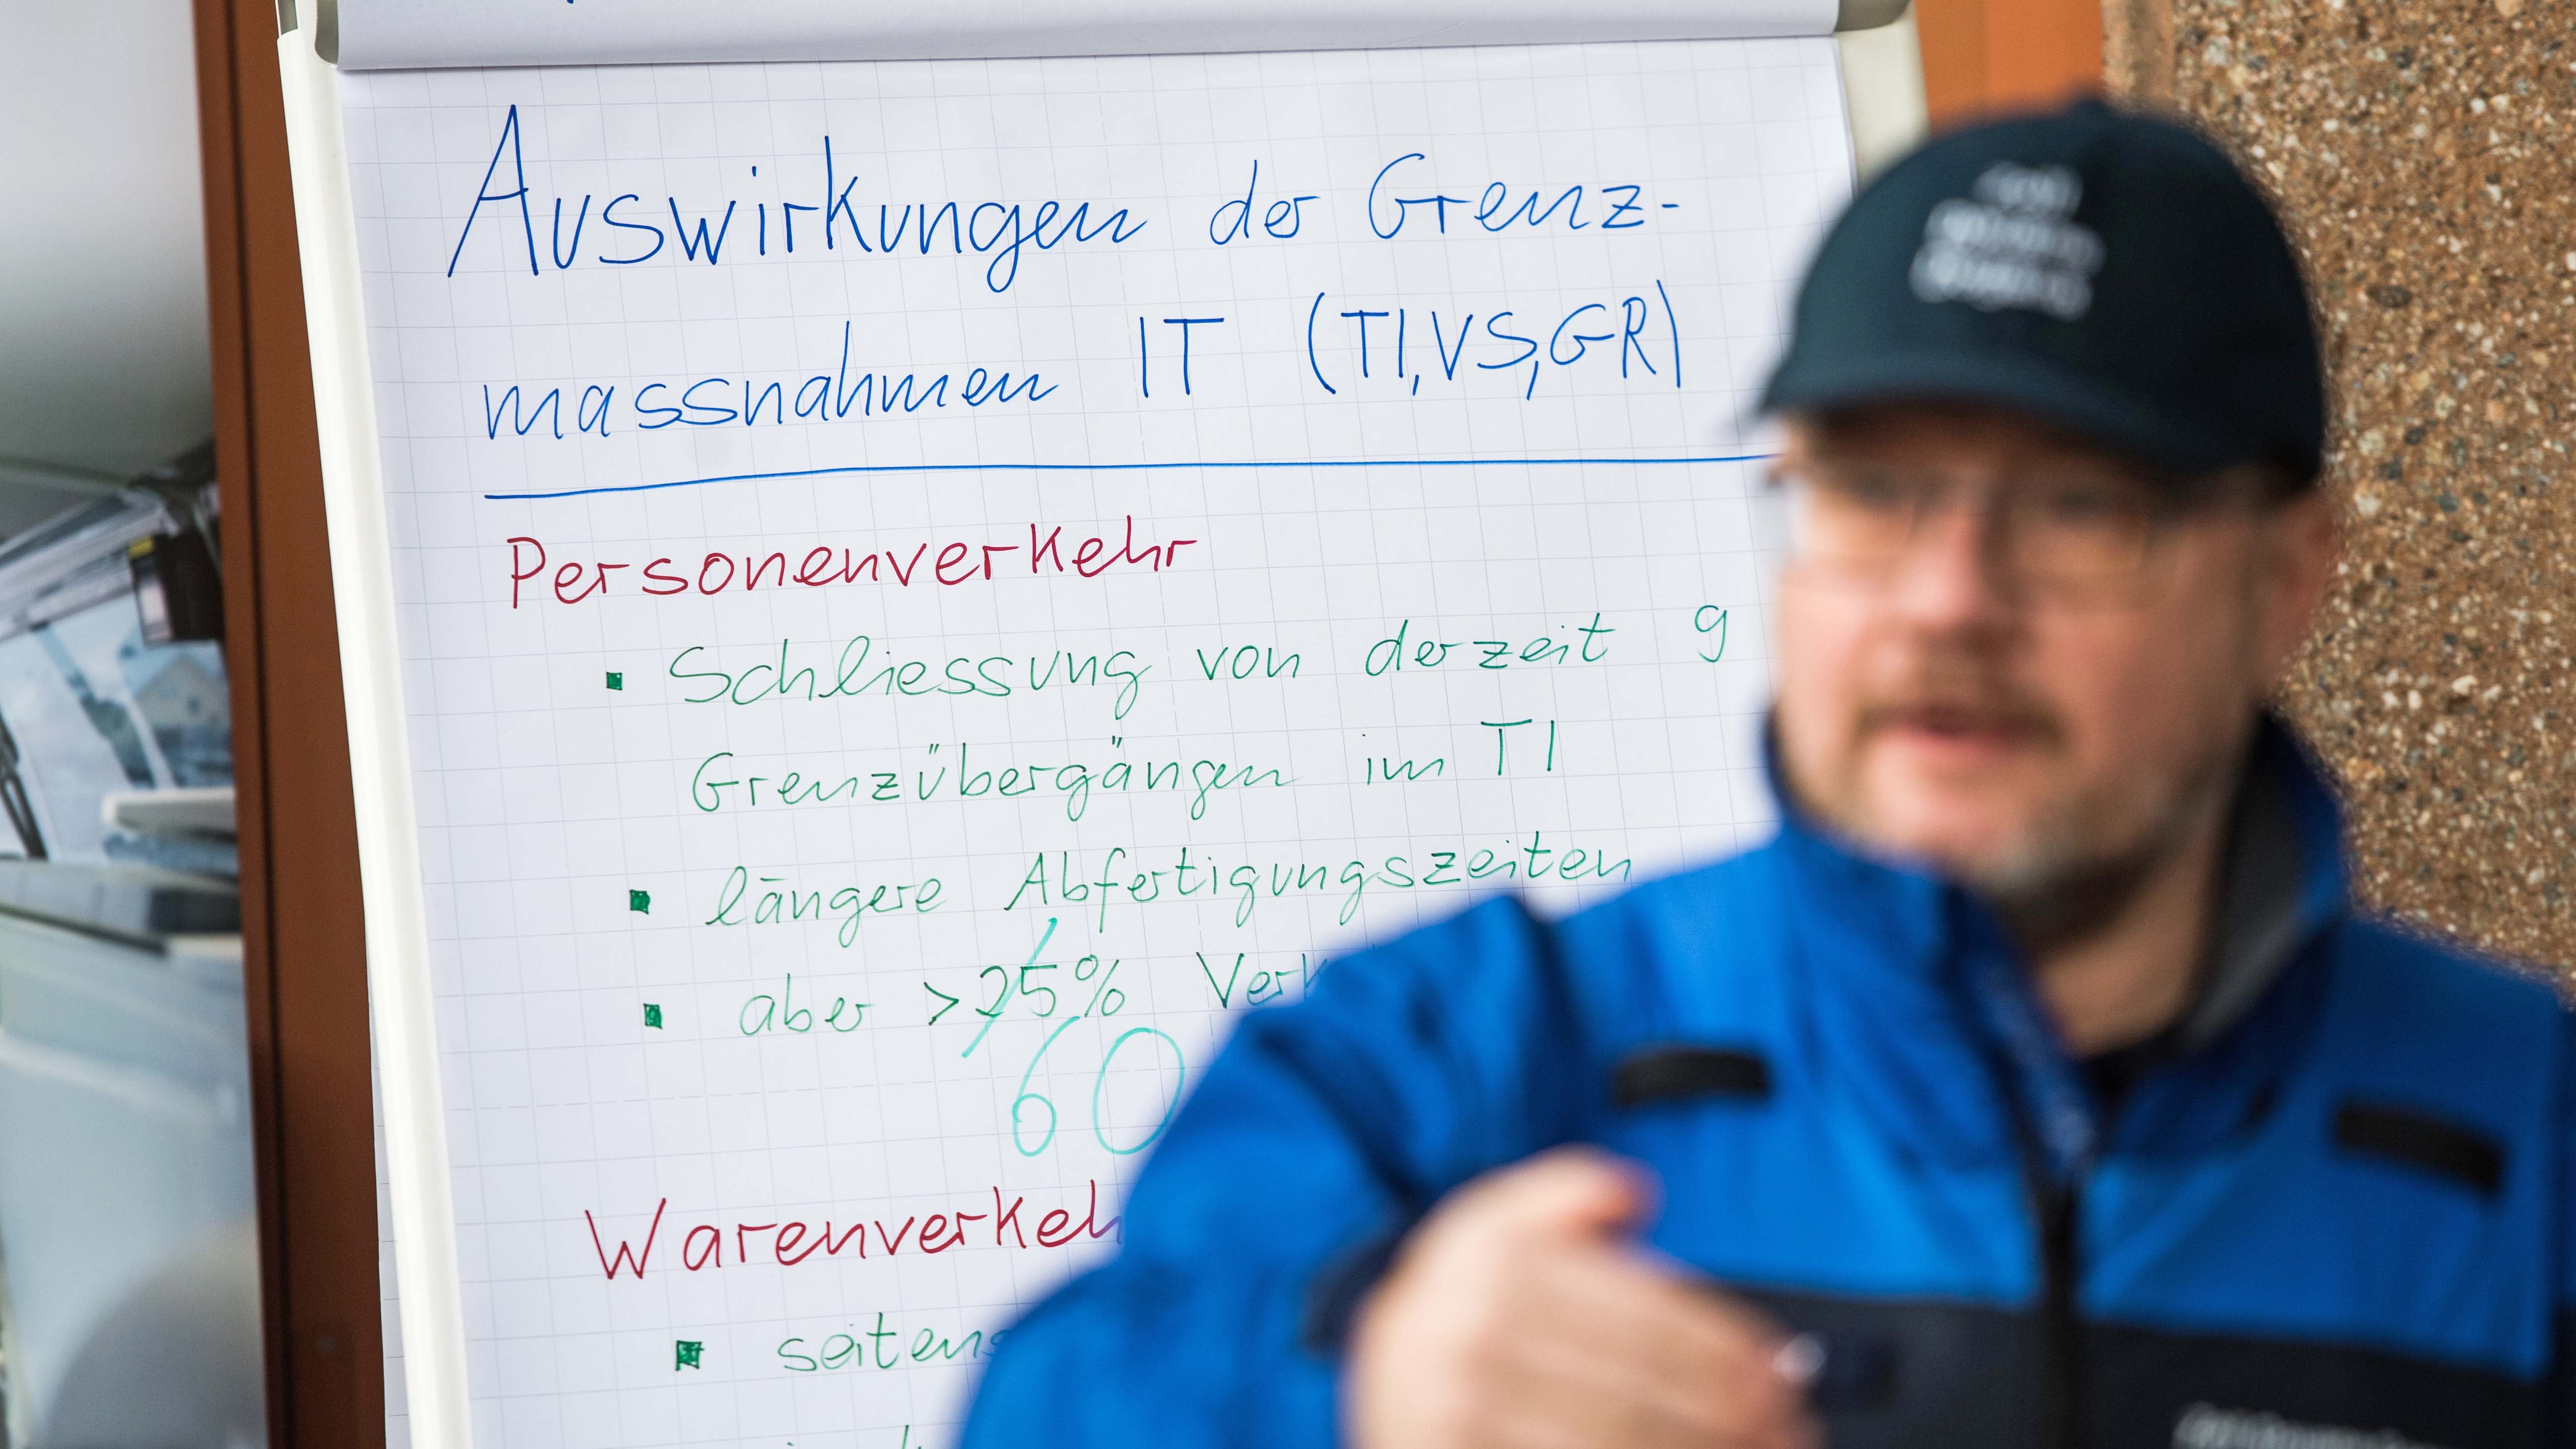 Auswirkungen der Grenz-
massnahmen IT (TI,VS,GR)
Personenverkehr
▪ Schliessung von derzeit 9
Grenzübergängen im TI
▪ längere Abfertigungszeiten
▪ aber >25%
60